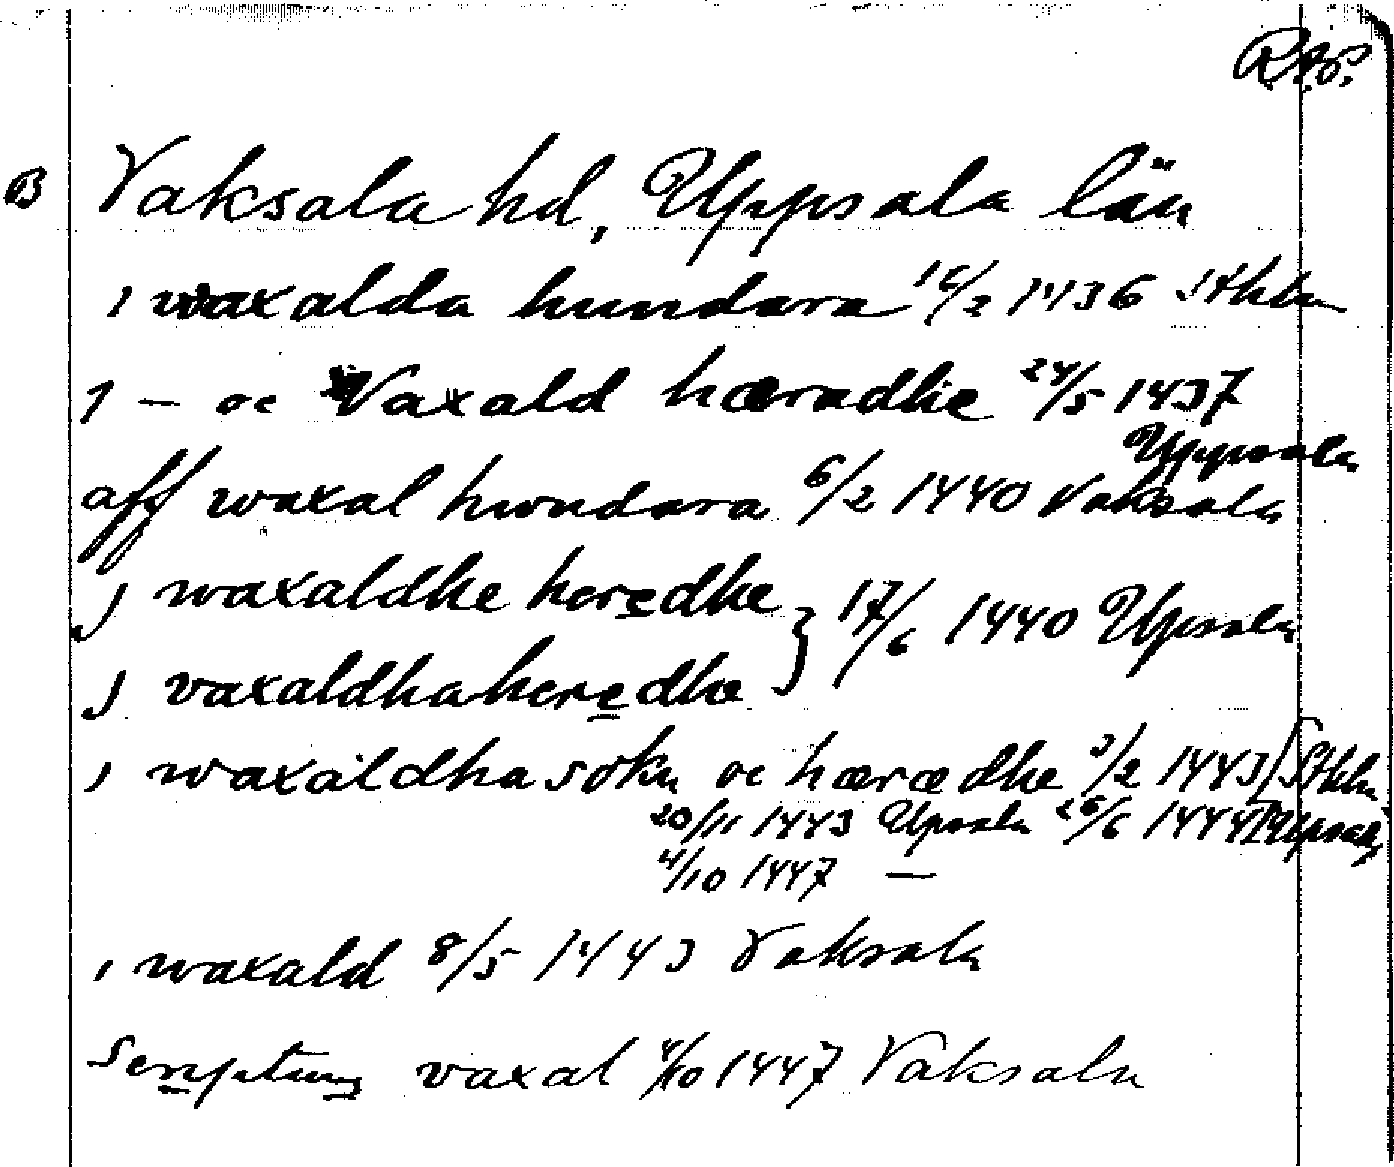 R.A.P.
B Vaksala hd, Uppsala län
i waxalda hundara 16/2 1436 Sthlm
J — oc Vaxald hæradhe 24/5 1437
Uppsala
aff waxal hwndara 6/2 1440 Vaksala
J waxaldhe heredhe
} 17/6 1440 Upsala
J vaxaldhaheredhe
i waxaldha sokn oc hærædhe 3/2 1443 Sthlm
20/11 1443 Upsala 26/6 1444 Upsala
4/10 1447 —
i waxald 8/5 1443 Vaksala
Scriptum vaxal 4/10 1447 Vaksala